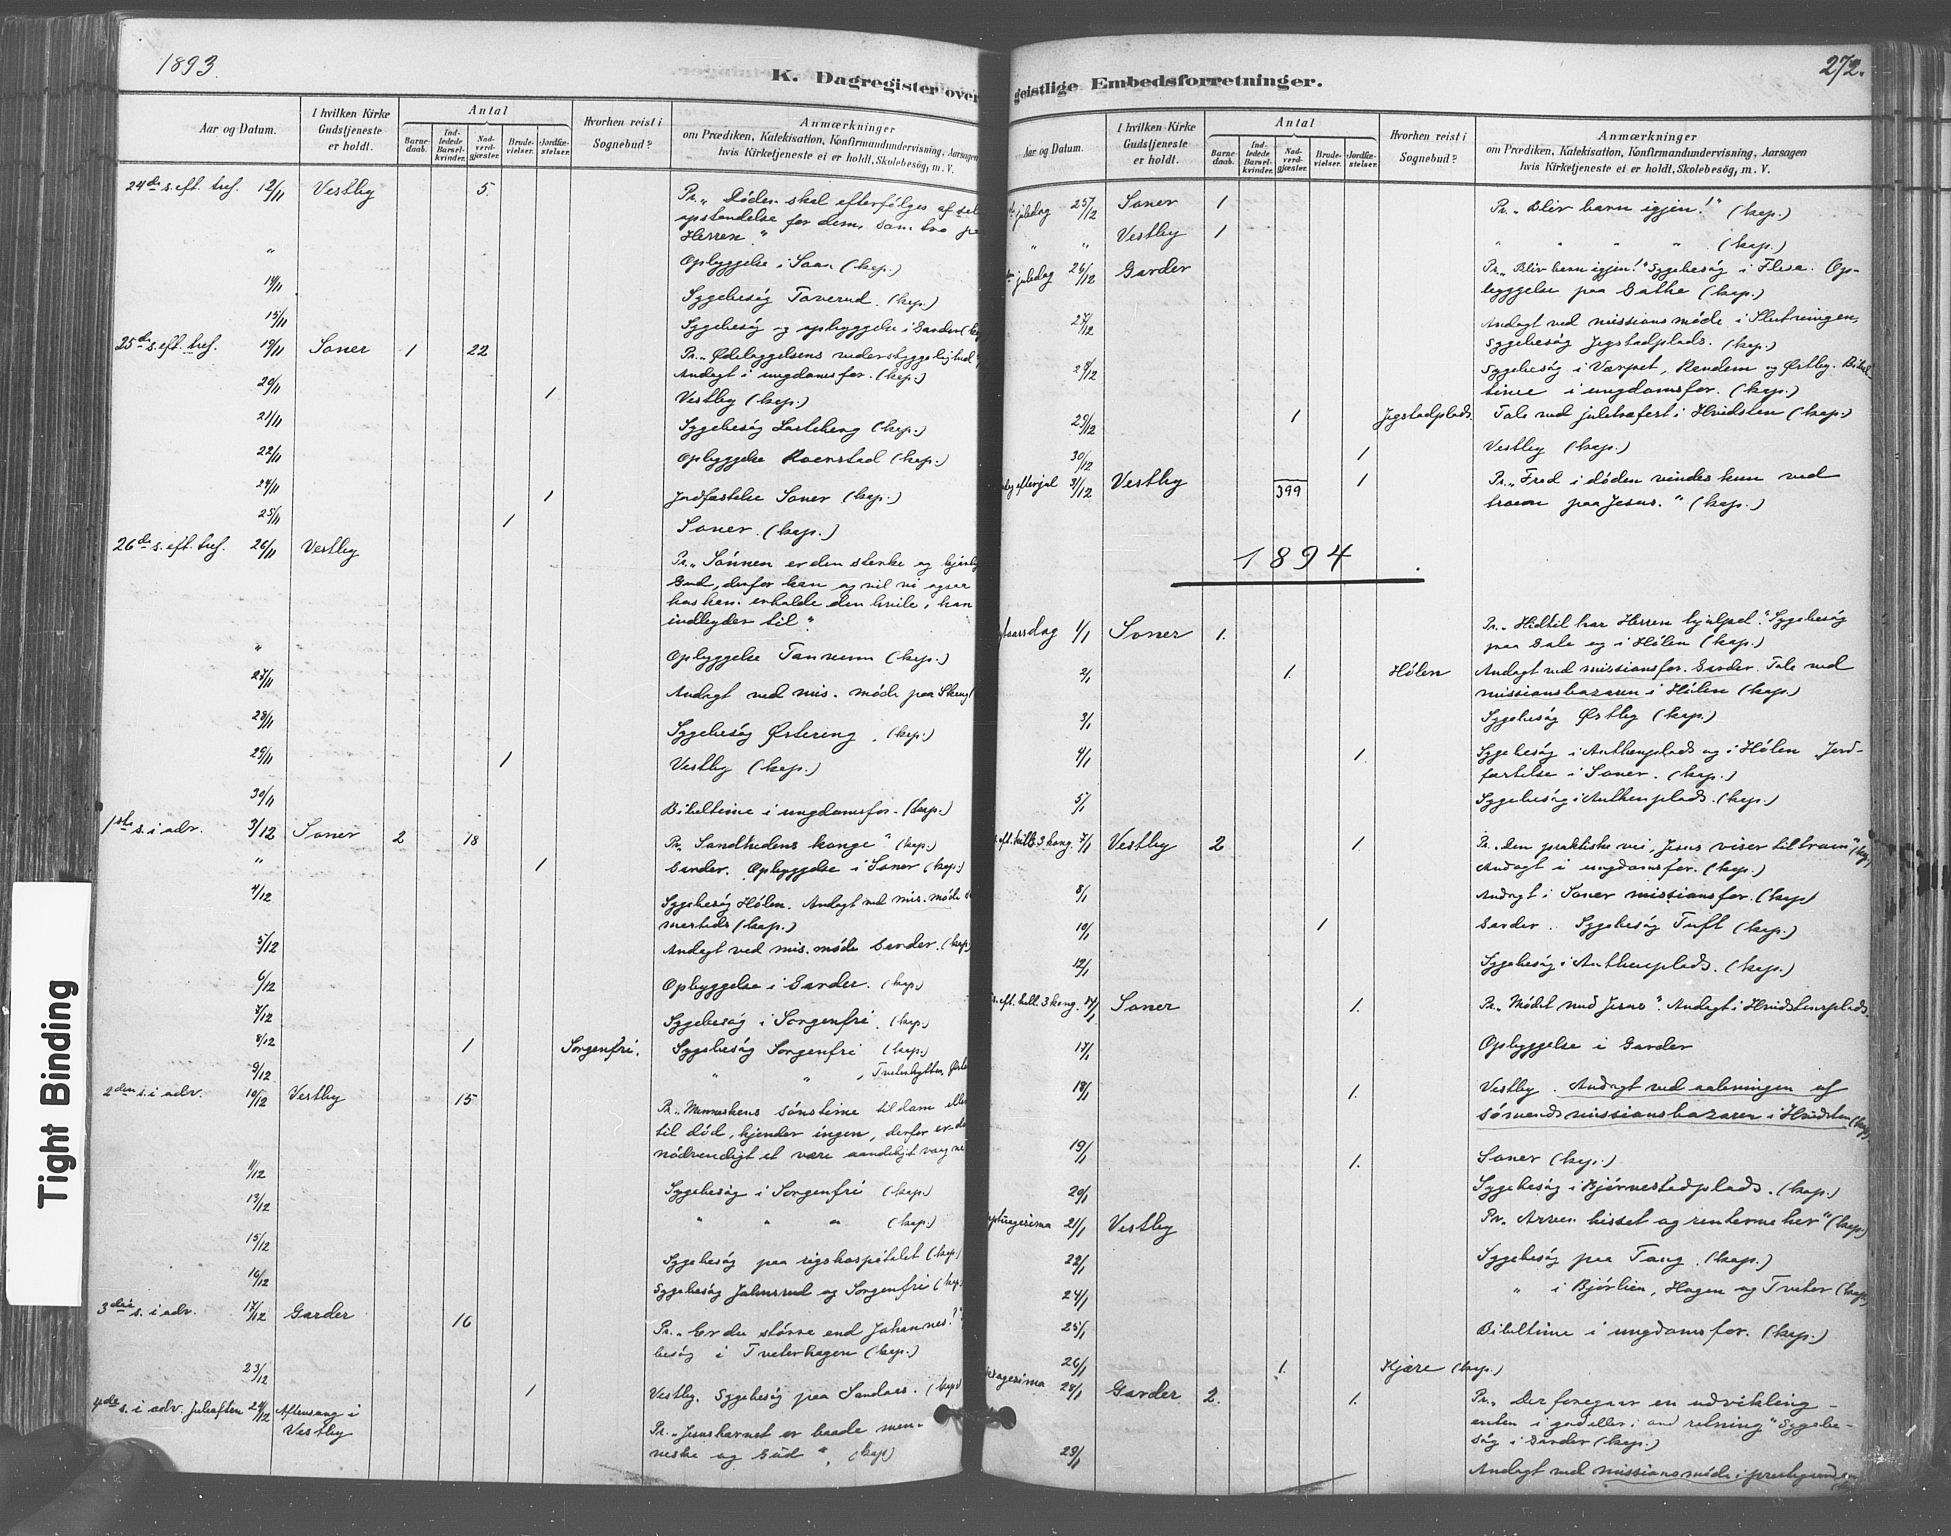 1893.
K. Dagregister over
Aar og Datum.
I hvilken Kirke Gudstjeneste er holdt.
Antal
Barnedaab.
Indledede Barselkvinder.
Nadverdgjæster.
Brudevielser.
Jordfæstelser.
Hvorhen reist i Sognebud?
Anmærkninger
om Prædiken, Katekisation, Konfirmandundervisning, Aarsagen
hvis Kirketjeneste ei er holdt, Skolebesøg, m. V.
24de s. eft. tref. 12/11 Vestby 5. Pr. „Døden skal efterfølges af
opstandelse for dem, som tro paa
Herren."
" Opbyggelse i Saan (kap.)
14/11 Sygebesøg Taverud. (kap.)
15/11 Sygebesøg og opbyggelse i Garder
25de s. eft. tref. 19/11 Soner 1 22 Pr. „Ødelæggelsens vederstyggelighed"
Andagt i ungdomsfor. (kap.)
20/11 1 Vestby (kap.)
21/11 Sygebesøg (kap.)
22/11 Opbyggelse (kap.)
24/11 1 Jordfæstelse Soner (kap.)
25/11 1 Soner. (kap.)
26de s. eft. tref. 26/11 Vestby Pr. „Sønnen er den sterke og
Gud, derfor kan og vil vi ogsaa
hos ham erholde den hvile, han
indbyder til".
" Opbyggelse Tannum (kap.)
27/11 Andagt ved mis. møde paa
28/11 Sygebesøg Østering. (kap.)
29/11 1 Vestby (kap.)
30/11 Bibeltime i ungdomsfor. (kap.)
1ste s. i adv. 3/12 Soner 2 18 Pr. „Sandhedens konge" (kap.)
" 1 Garder. Opbyggelse i Soner (kap.)
4/12 Sygebesøg Hølen. Andagt ved mis. møde
(kap.)
5/12 Andagt ved mis. møde Garder. (kap)
6/12 Opbyggelse i Garder. (kap)
7/12 Sygebesøg i Sorgenfri. (kap)
8/12 1 Sorgenfri. Sygebesøg Sorgenfri (kap.)
9/12 " "
2den s. i adv. 10/12 Vestby 15 Pr. „Menneskens søns time til dom eller
til død, kjender ingen, derfor er
nødvendigt at være aandeligt
11/12 Sygebesøg i Sorgenfri (kap.)
13/12 " " " (kap.)
15/12 Sygebesøg paa rigshospitalet (kap)
16/12 Sygebesøg og Sorgenfri (kap
3die s. i adv. 17/12 Garder 16 Pr. „Er du større end Johannes?"
besøg i Tveterhagen (kap.)
23/12 1 Vestby. Sygebesøg paa (kap)
4de s. i adv. Juleaften 24/12 Aftensang i Vestby Pr. „Jesusbarnet er baade men-
neske og Gud", (kap)
272.
geistlige Embedsforretninger.
Aar og Datum.
I hvilken Kirke Gudstjeneste er holdt.
Antal
Barnedaab.
Indledede Barselkvinder.
Nadverdgjæster.
Brudevielser.
Jordfæstelser.
Hvorhen reist i Sognebud?
Anmærkninger
om Prædiken, Katekisation, Konfirmandundervisning, Aarsagen
hvis Kirketjeneste ei er holdt, Skolebesøg, m. V.
juledag 25/12 Soner 1 Pr. „Bliv barn igjen!" (kap.)
" " Vestby 1 " " " " (kap.)
juledag 26/12 Garder Pr. „Bliv barn igjen!" Sygebesøg i Op-
byggelse paa (kap.)
27/12 Andagt ved missionsmøde i
Sygebesøg Jegstadplads. (kap.)
28/12 Sygebesøg i og Østby. Bibel-
time i ungdomsfor. (kap.)
29/12 1 Jegstadplads. Tale ved juletræfest i Hvidsten (kap.)
30/12 1 Vestby (kap.)
31/12 Vestby 399 1 Pr. „Fred i døden vindes kun ved
troen paa Jesus." (kap.)
1894.
1/1 Soner 1. Pr. „Hidtil har Herren hjulpet." Sygebesøg
paa og i Hølen (kap.)
2/1 1. Hølen Andagt ved missionsfor. Garder. Tale ved
missionsbazaren i Hølen (kap.)
3/1 Sygebesøg Østby (kap.)
4/1 1. Sygebesøg i Anthenplads og i Hølen Jord-
fæstelse i Soner. (kap.)
5/1 Sygebesøg i Anthenplads. (kap.)
eft. hell. 3 kong. 7/1 Vestby 2 1. Pr. „Den praktiske vei, Jesus viser til troen"
Andagt i ungdomsfor. (kap.)
8/1 Andagt i Soner missionsfor. (kap)
10/1 1 Garder. Sygebesøg Tuft (kap.)
12/1 Sygebesøg i Anthenplads. (kap.)
eft. hell. 3 kong. 14/1 Soner 1. Pr. „Mødet med Jesus". Andagt i Hvidstenplads.
17/1 Opbyggelse i Garder
18/1 1. Vestby. Andagt ved aabningen af
sømandsmissionsbazaren i Hvidsten (kap)
19/1 1. Soner (kap.)
20/1 Sygebesøg i Bjørnestadplads. (kap.)
21/1 Vestby Pr. „Arven hisset og renterne her" (kap.)
22/1 Sygebesøg paa (kap.)
24/1 " i Bjørlien, Hagen og Tveter (kap.)
25/1 Bibeltime i ungdomsfor. (kap.)
26/1 1. Kjære (kap.)
28/1 Garder 2. 1. Pr. „Der foregaar en udvikling
enten i god eller i ond retning." Sygebe-
søg i Garder (kap.)
29/1 Andagt ved missionsmøde i
Tight Binding